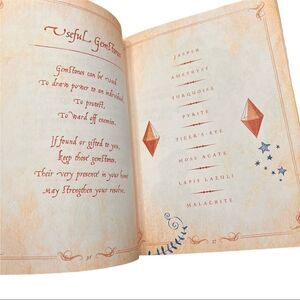 Useful Gemstones
Gemstones can be used
To draw power to an individual
To protect,
To ward off enemies.
If found or gifted to you,
keep those gemstones.
Their very presence in your home
May strengthen your resolve.
JASPER
AMETHYST
TURQUOISE
PYRITE
TIGER'S-EYE
MOSS AGATE
LAPIS LAZULI
MALACHITE